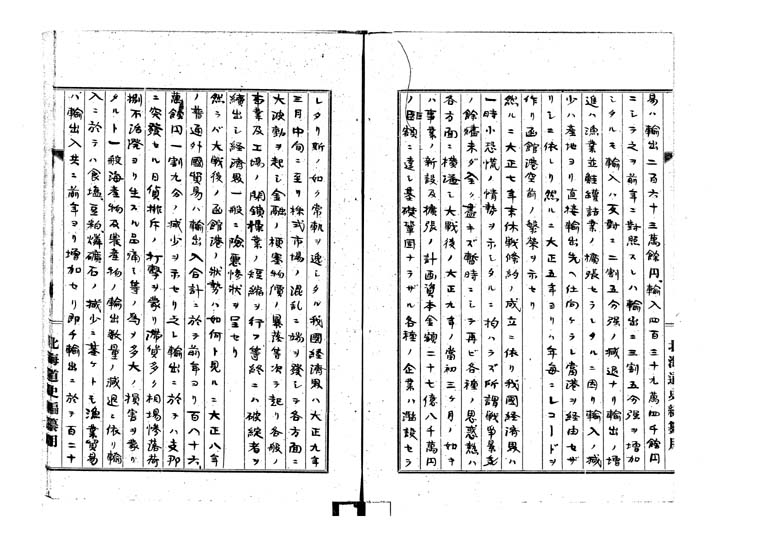 易ハ輸出二百六十三萬餘円輸入四百三十九萬四千餘円
ニシテ之ヲ前年ニ對照スレハ輸出ニ三割五分強ヲ増加
シタルモ輸入ハ反對ニ二割五分強ノ減退ナリ輸出ノ増
進ハ漁業並鮭罐詰業ノ擴張セラレタルニ因リ輸入ノ減
少ハ産地ヨリ直接輸出先ヘ仕向ケラレ當港ヲ経由セザ
リシニ依レリ然ルニ大正五年ヨリハ年毎ニレコードヲ
作リ函館港空前ノ繁榮ヲ示セリ
然ルニ大正七年末休戦條約ノ成立ニ依リ我國経済界ハ
一時小恐慌ノ情勢ヲ示シタルニ拘ハラズ所謂戦争景気
ノ餘燼未ダ全ク盡キズ暫時ニシテ再ビ各種ノ思惑熱ハ
各方面ニ横溢シ大戦後ノ大正九年ノ當初三ケ月ノ如キ
ハ事業ノ新設及擴張ノ計画資本金額二十七億八千萬円
ノ巨額ニ達シ基礎鞏固ナラザル各種ノ企業ハ濫設セラ
レタリ斯ノ如ク常軌ヲ逸シタル我國経済界ハ大正九年
三月中旬ニ至リ株式市場ノ混乱ニ端ヲ發シテ各方面ニ
大波動ヲ起シ金融ノ梗塞物價ノ暴落皆次テ起リ各般ノ
事業及工場ノ閉鎖操業ノ短縮ヲ行フ等終ニハ破綻者ヲ
續出シ経済界一般ニ險悪惨状ヲ呈セリ
然ラバ大戦後ノ函館港ノ狀勢ハ如何ト見ルニ大正八年
ノ普通外國貿易ハ輸出入合計ニ於テ前年ヨリ百八十六
萬餘円一割九分ノ減少ヲ示セリ之レ輸出ニ於テハ支那
ニ突發セル日貨排斥ノ打撃ヲ蒙リ滞貨多ク相場惨落荷
捌不滑澤ヨリ生スル品痛ミ等ノ為メ多大ノ損害ヲ蒙リ
タルト一般海産物及農産物ノ輸出数量ノ減退ニ依リ輸
入ニ於テハ食塩豆粕燐礦石ノ減少ニ基ケトモ漁業貿易
ハ輸出入共ニ前年ヨリ増加セリ即チ輸出ニ於テ百二十
北海道史編纂用